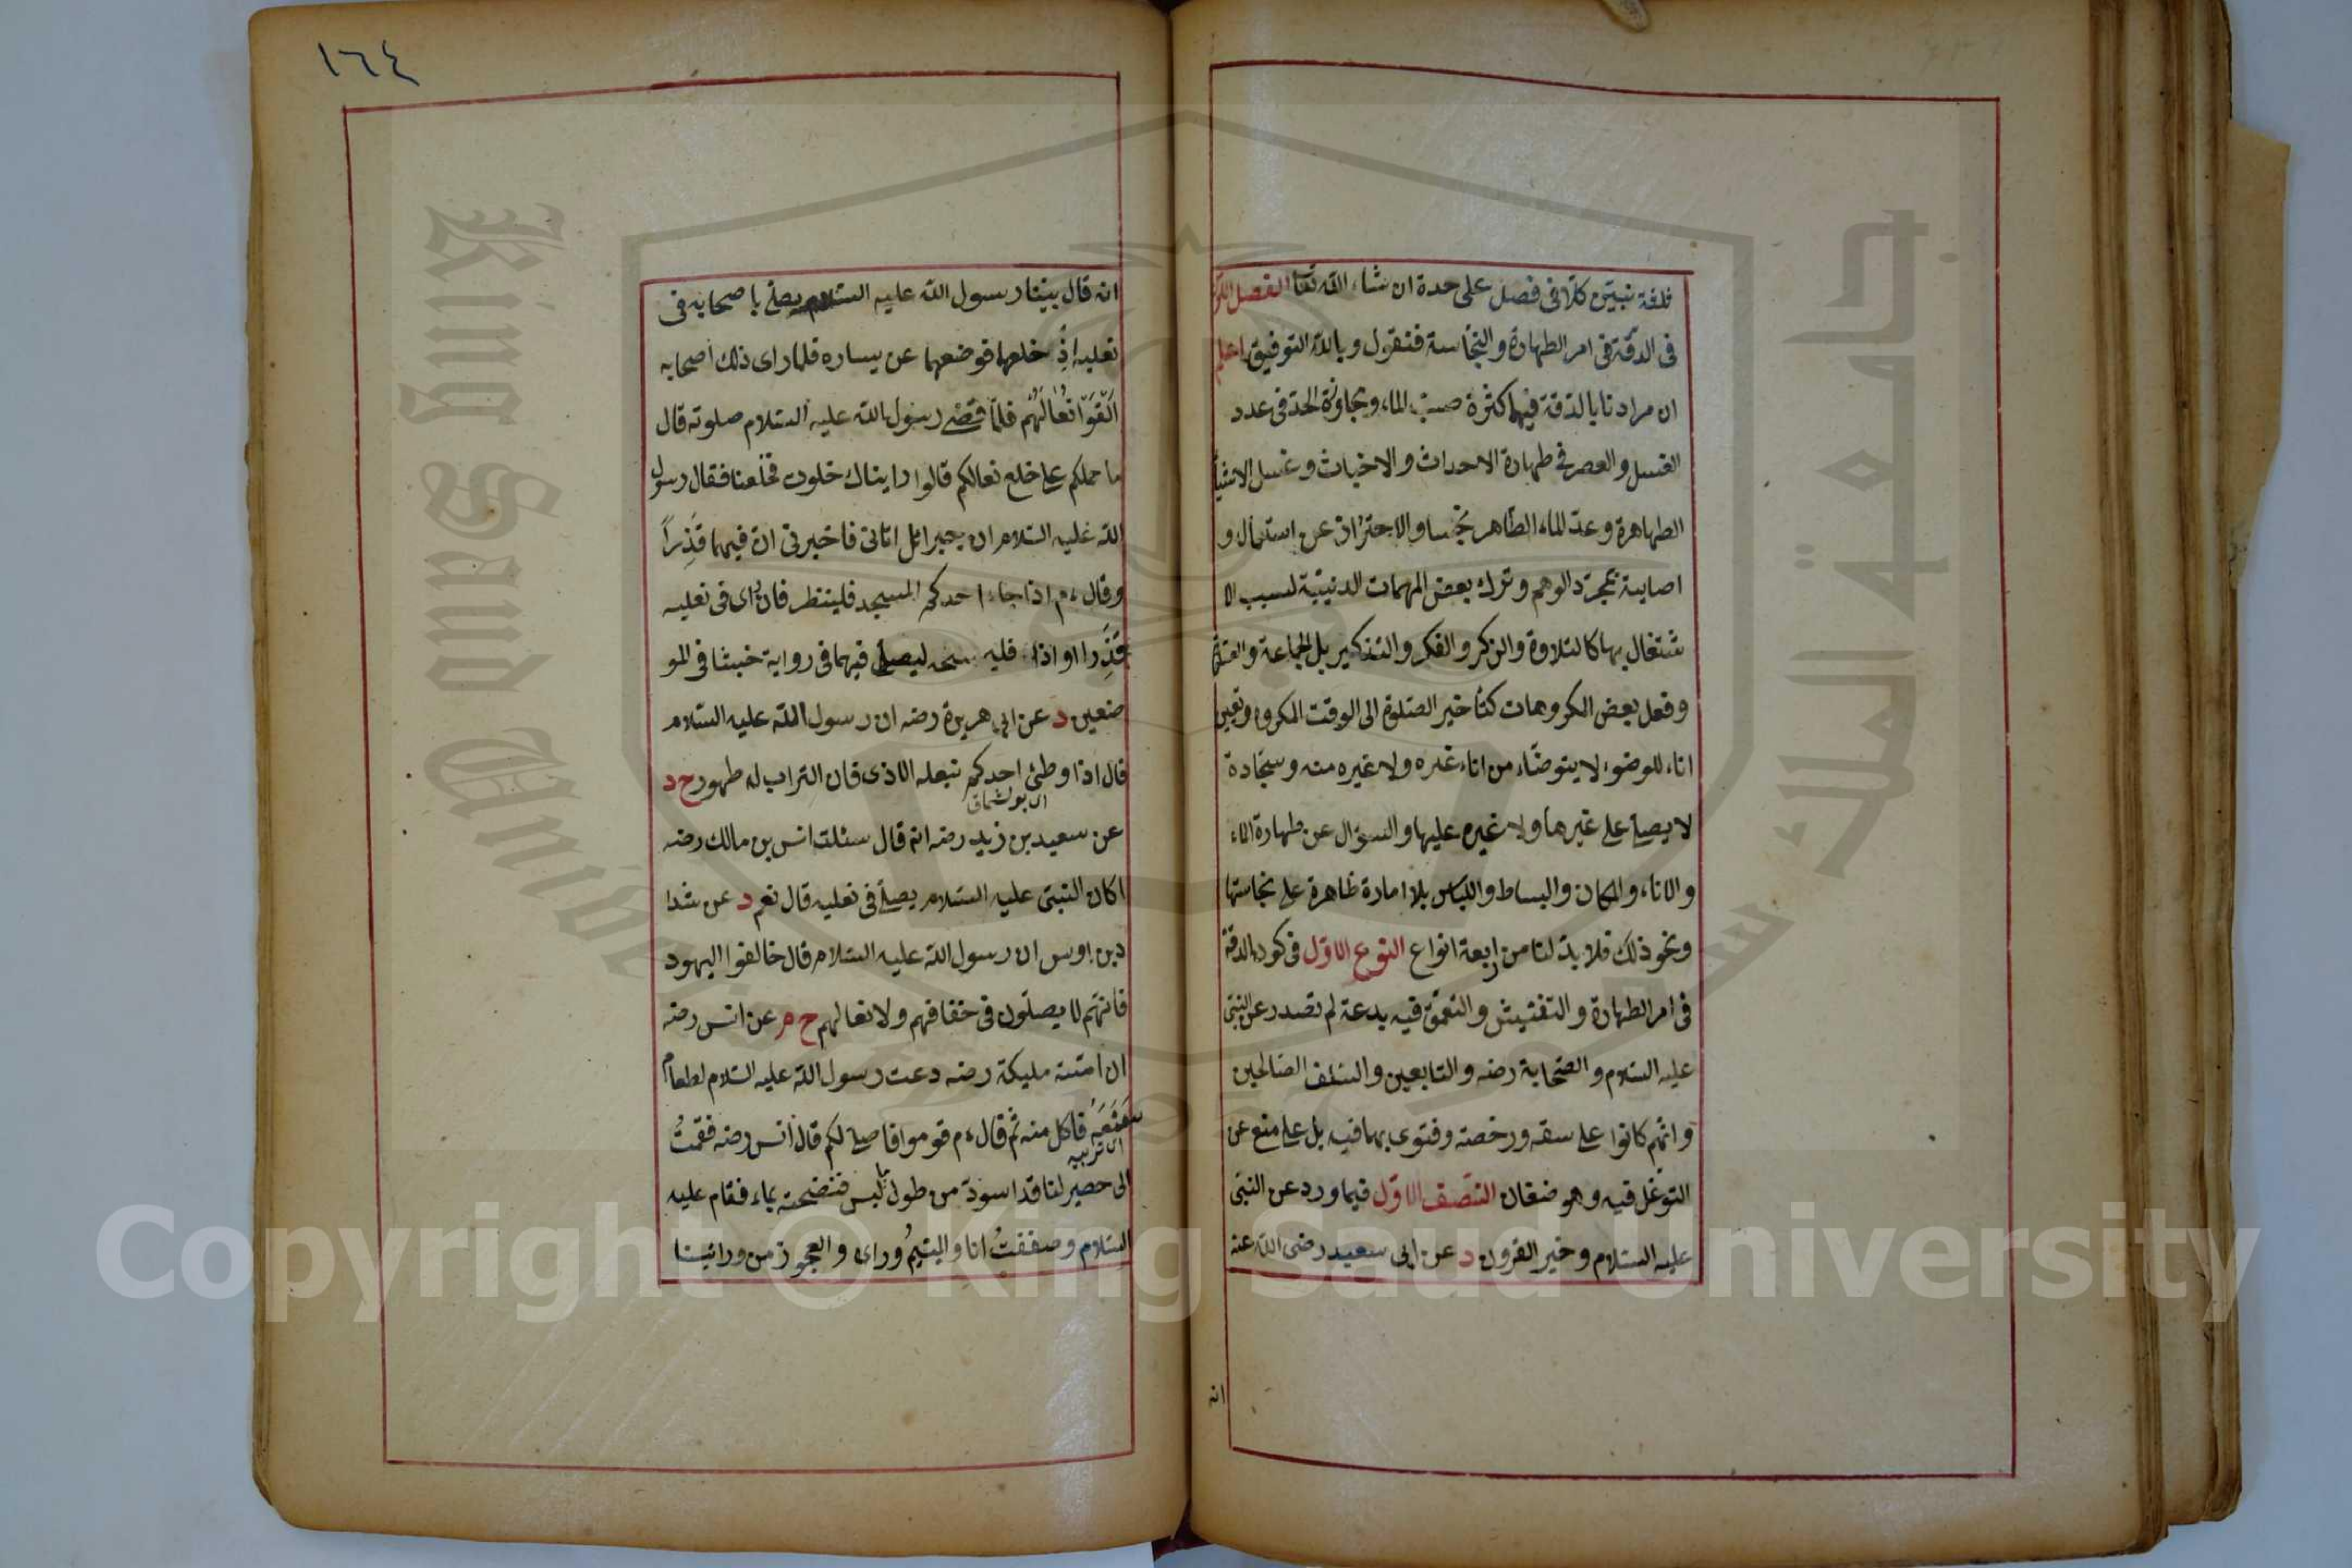 ثلثة نبين كلا فى فصل على حدة ان شاء الله تعا الفصل الاول
فى الدقة فى امر الطهارة والنجاسة فنقول وبالله التوفيق اعلم
ان مرادنا بالدقة فيهما كثرة صبّ الماء وتجاوزة الحد فى عدد
الغسل والعصر فى طهارة الاحداث والاخباث وغسل الاشيا
الطاهرة وعد الماء الطاهر نجسا والاحتراز عن استعمال و
اصابية بمجرد الوهم وترك بعض المهمات الدينية لسبب الا
شتغال بها كالتلاوة والذكر والفكر والتذكير بل الجماعة و
وفعل بعض المكروهات كتأخير الصلوة الى الوقت المكروه وتعيين
اناء للوضوء لا يتوضاء من اناء غيره ولا غيره منه وسجادة
لا يصلى على غيرها ولا غيره عليها والسؤال عن طهارة الماء
والاناء والمكان والبساط واللباس بلا امارة ظاهرة على نجاستها
ونحو ذلك فلا بد لنا من اربعة انواع النوع الاول فى كون الدقة
فى امر الطهارة والتفتيش والتعمق فيه بدعة لم تصدر عن النبى
عليه السلام والصحابة رضه والتابعين والسلف الصالحين
وانهم كانوا على سقه ورخصة وفتوى بهما فيه بل على منع عن
التوغل فيه وهو ضنفان الصنف الاول فيما ورد عن النبى
عليه السلام وخير القرون د عن ابى سعيد رضى الله عنه
انه
١٦٤
انه قال بينا رسول الله عليه السلام يصلى باصحابه فى
نعليه اذ خلعها فوضعها عن يساره فلما راى ذلك اصحابه
القوا نعالهم فلما قضى رسول الله عليه السلام صلوته قال
ما حملكم على خلع نعالكم قالوا رايناك خلون فخلعنا فقال رسول
الله عليه السلام ان جبرائل اتانى فاخبرنى ان فيهما قذرا
وقال ءم اذا جاء احدكم المسجد فلينظر فان راى فى نعليه
قذرا او اذا فليمسحه ليصلى فيهما فى رواية خبثا فى المو
ضعين د عن ابى هريرة رضه ان رسول الله عليه السلام
قال اذا وطئ احدكم بنعله الاذى فان التراب له طهور ح د
عن سعيد بن زيد رضه انه قال سئلت انس بن مالك رضه
اكان النبى عليه السلام يصلى فى نعليه قال نعم د عن شدا
دبن اوس ان رسول الله عليه السلام قال خالفوا اليهود
فانهم لا يصلون فى خفافهم ولا نعالهم ح م عن انس رضه
ان امته مليكة رضه دعت رسول الله عليه السلام لطعام
صنعته فاكل منه ثم قال ءم قوموا فاصلى لكم قال انس رضه فقمت
الى حصير لنا قد اسود من طول ما لبس فنضحته بماء فقام عليه
السلام وصففت انا واليتيم وراى والعجوز من ورائينا